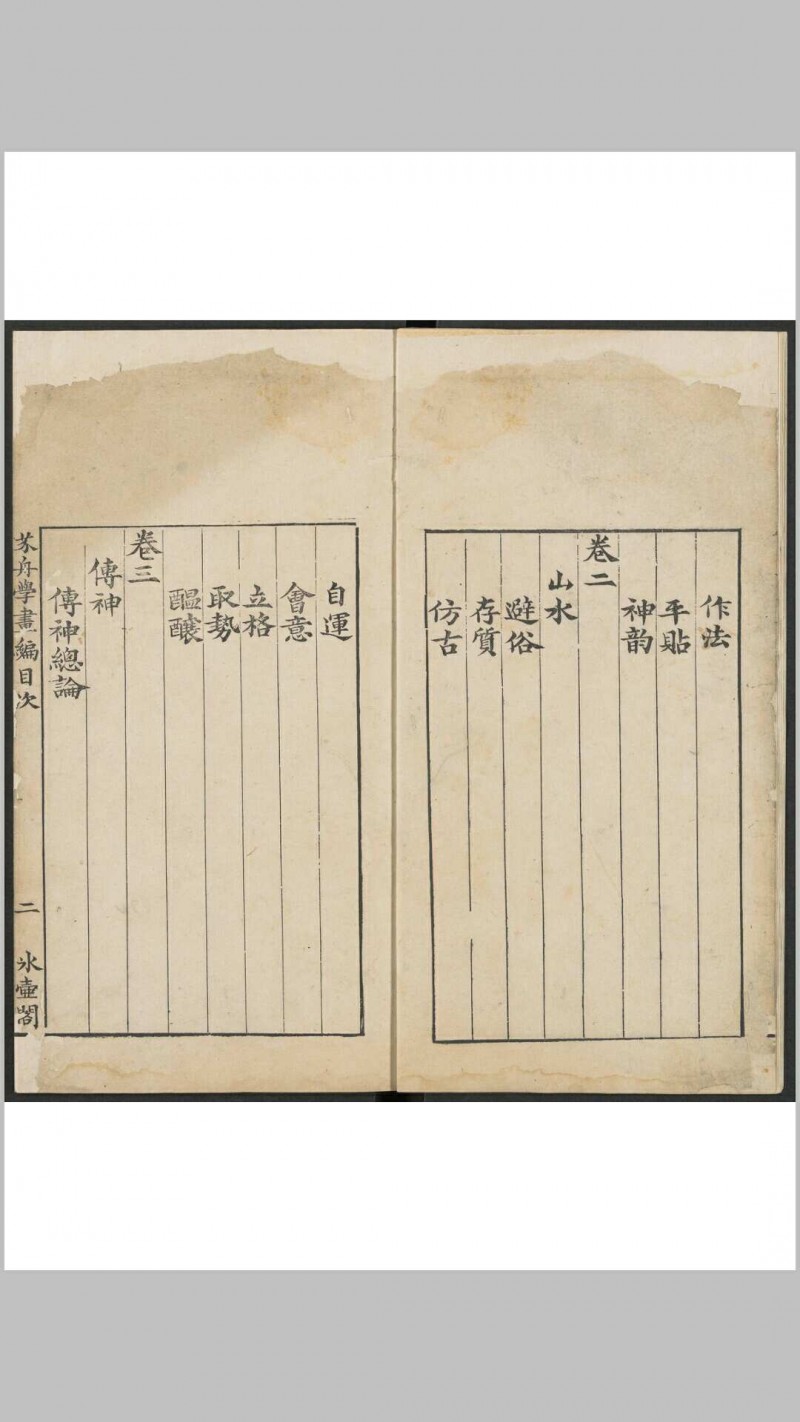 作法
平貼
神韵
卷二
山水
避俗
存質
仿古
自運
會意
立格
取勢
醖釀
卷三
傳神
傳神總論
芥舟學畫編目次 二 冰壺閣